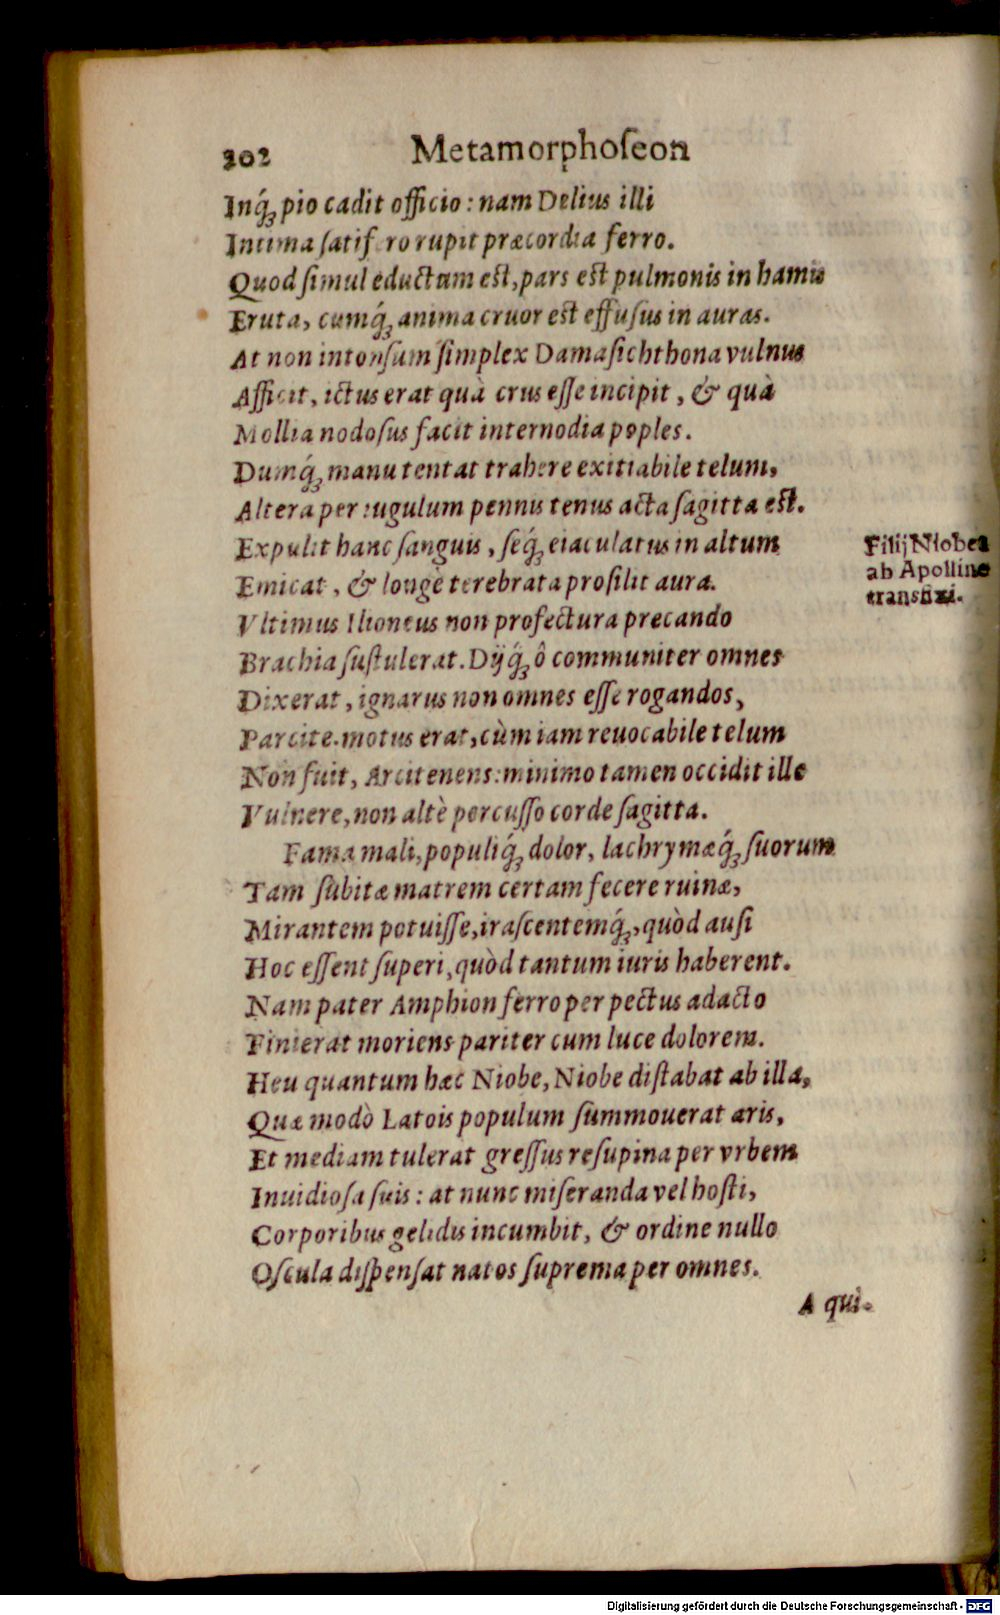 202 Metamorphoſeon
Inq́ꝫ pio cadit officio: nam Delius illi
Intima fatif ro rupit præcordia ferro.
Quod ſimul eductum est, pars est pulmonis in hamis
Eruta, cumq́ꝫ anima cruor est effuſus in auras.
At non intonſum ſimplex Damaſichthona vulnus
Afficit, ictus erat quà crus eſſe incipit, & quà
Mollia nodoſus facit internodia poples.
Dumq́ꝫ manu tentat trahere exitiabile telum,
Altera per iugulum pennis tenus acta ſagitta est.
Expulit hanc ſanguis, ſeq́ꝫ eiaculatus in altum
Emicat, & longè terebrata proſilit aura.
Vltimus Ilioneus non profectura precando
Brachia ſuſtulerat. Dijq́ꝫ ô communiter omnes
Dixerat, ignarus non omnes eſſe rogandos,
Parcite. motus erat, cùm iam reuocabile telum
Non fuit, Arcitenens: minimo tamen occidit ille
Vulnere, non altè percuſſo corde ſagitta.
Fama mali, populiq́ꝫ dolor, lachrymæq́ꝫ ſuorum
Tam ſubitæ matrem certam fecere ruinæ,
Mirantem potuiſſe, iraſcentemq́ꝫ, quòd auſi
Hoc eſſent ſuperi, quòd tantum iuris haberent.
Nam pater Amphion ferro per pectus adacto
Finierat moriens pariter cum luce dolorem.
Heu quantum hæc Niobe, Niobe diſtabat ab illa,
Quæ modò Latois populum ſummouerat aris,
Et mediam tulerat greſſus reſupina per vrbem
Inuidioſa ſuis: at nunc miſeranda vel hoſti,
Corporibus gelidis incumbit, & ordine nullo
Oſcula diſpenſat natos ſuprema per omnes.
A qui-
Filij Niobes
ab Apolline
transfixi.
Digitalisierung gefördert durch die Deutsche Forschungsgemeinschaft - DFG